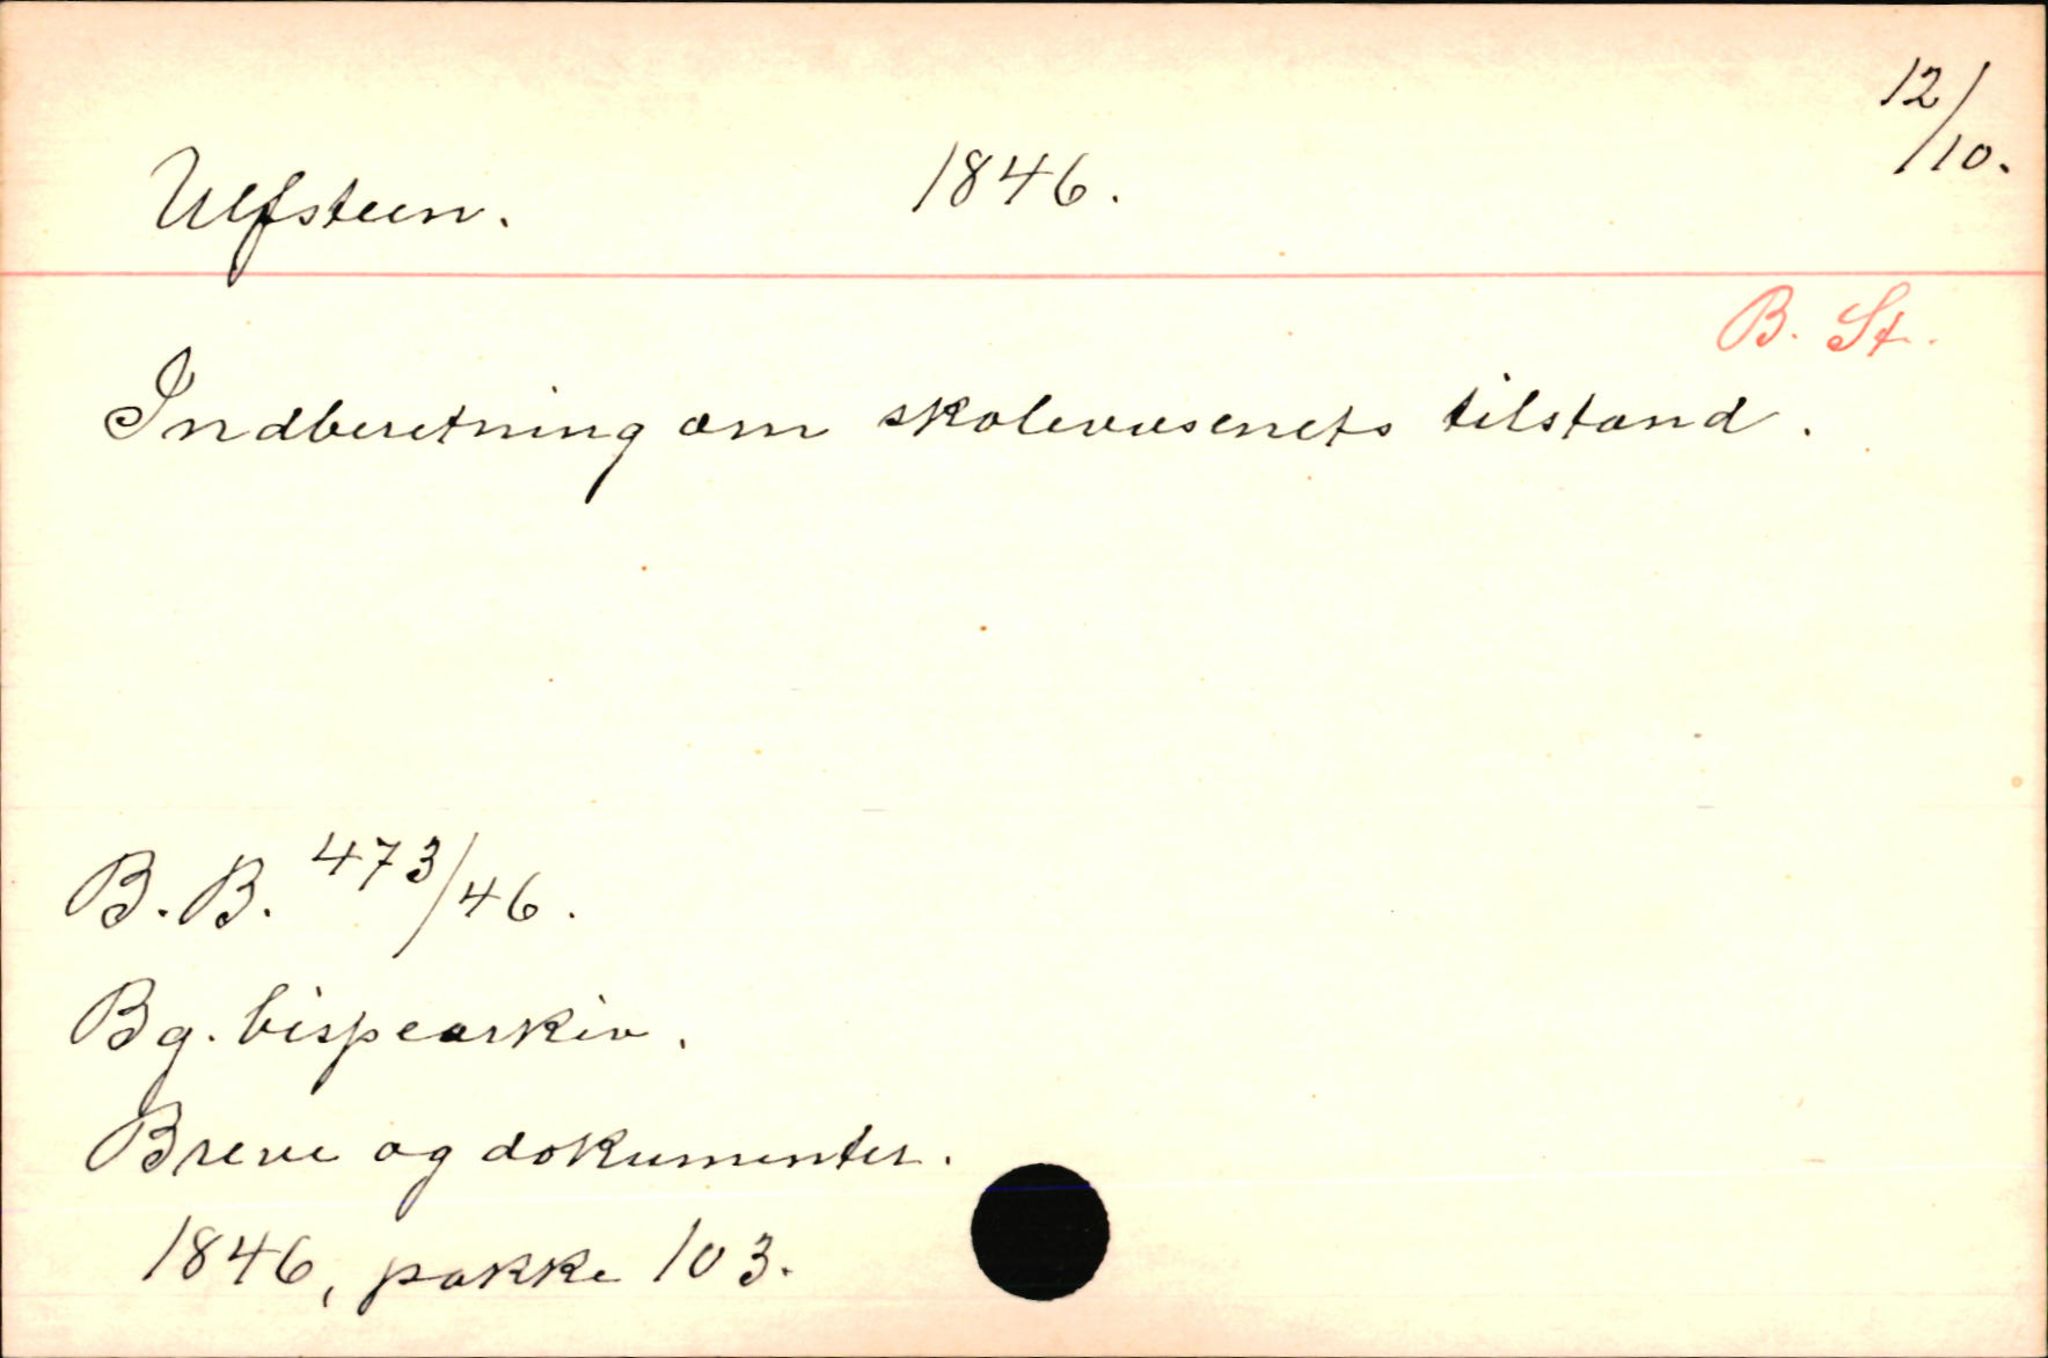 Ulfsteen. 1846. 12/10.
B. St.
Indberetning om skolevæsenets tilstand.
B. B. 473/46.
Bg. bispearkiv.
Breve og dokumenter.
1846, pakke 103.